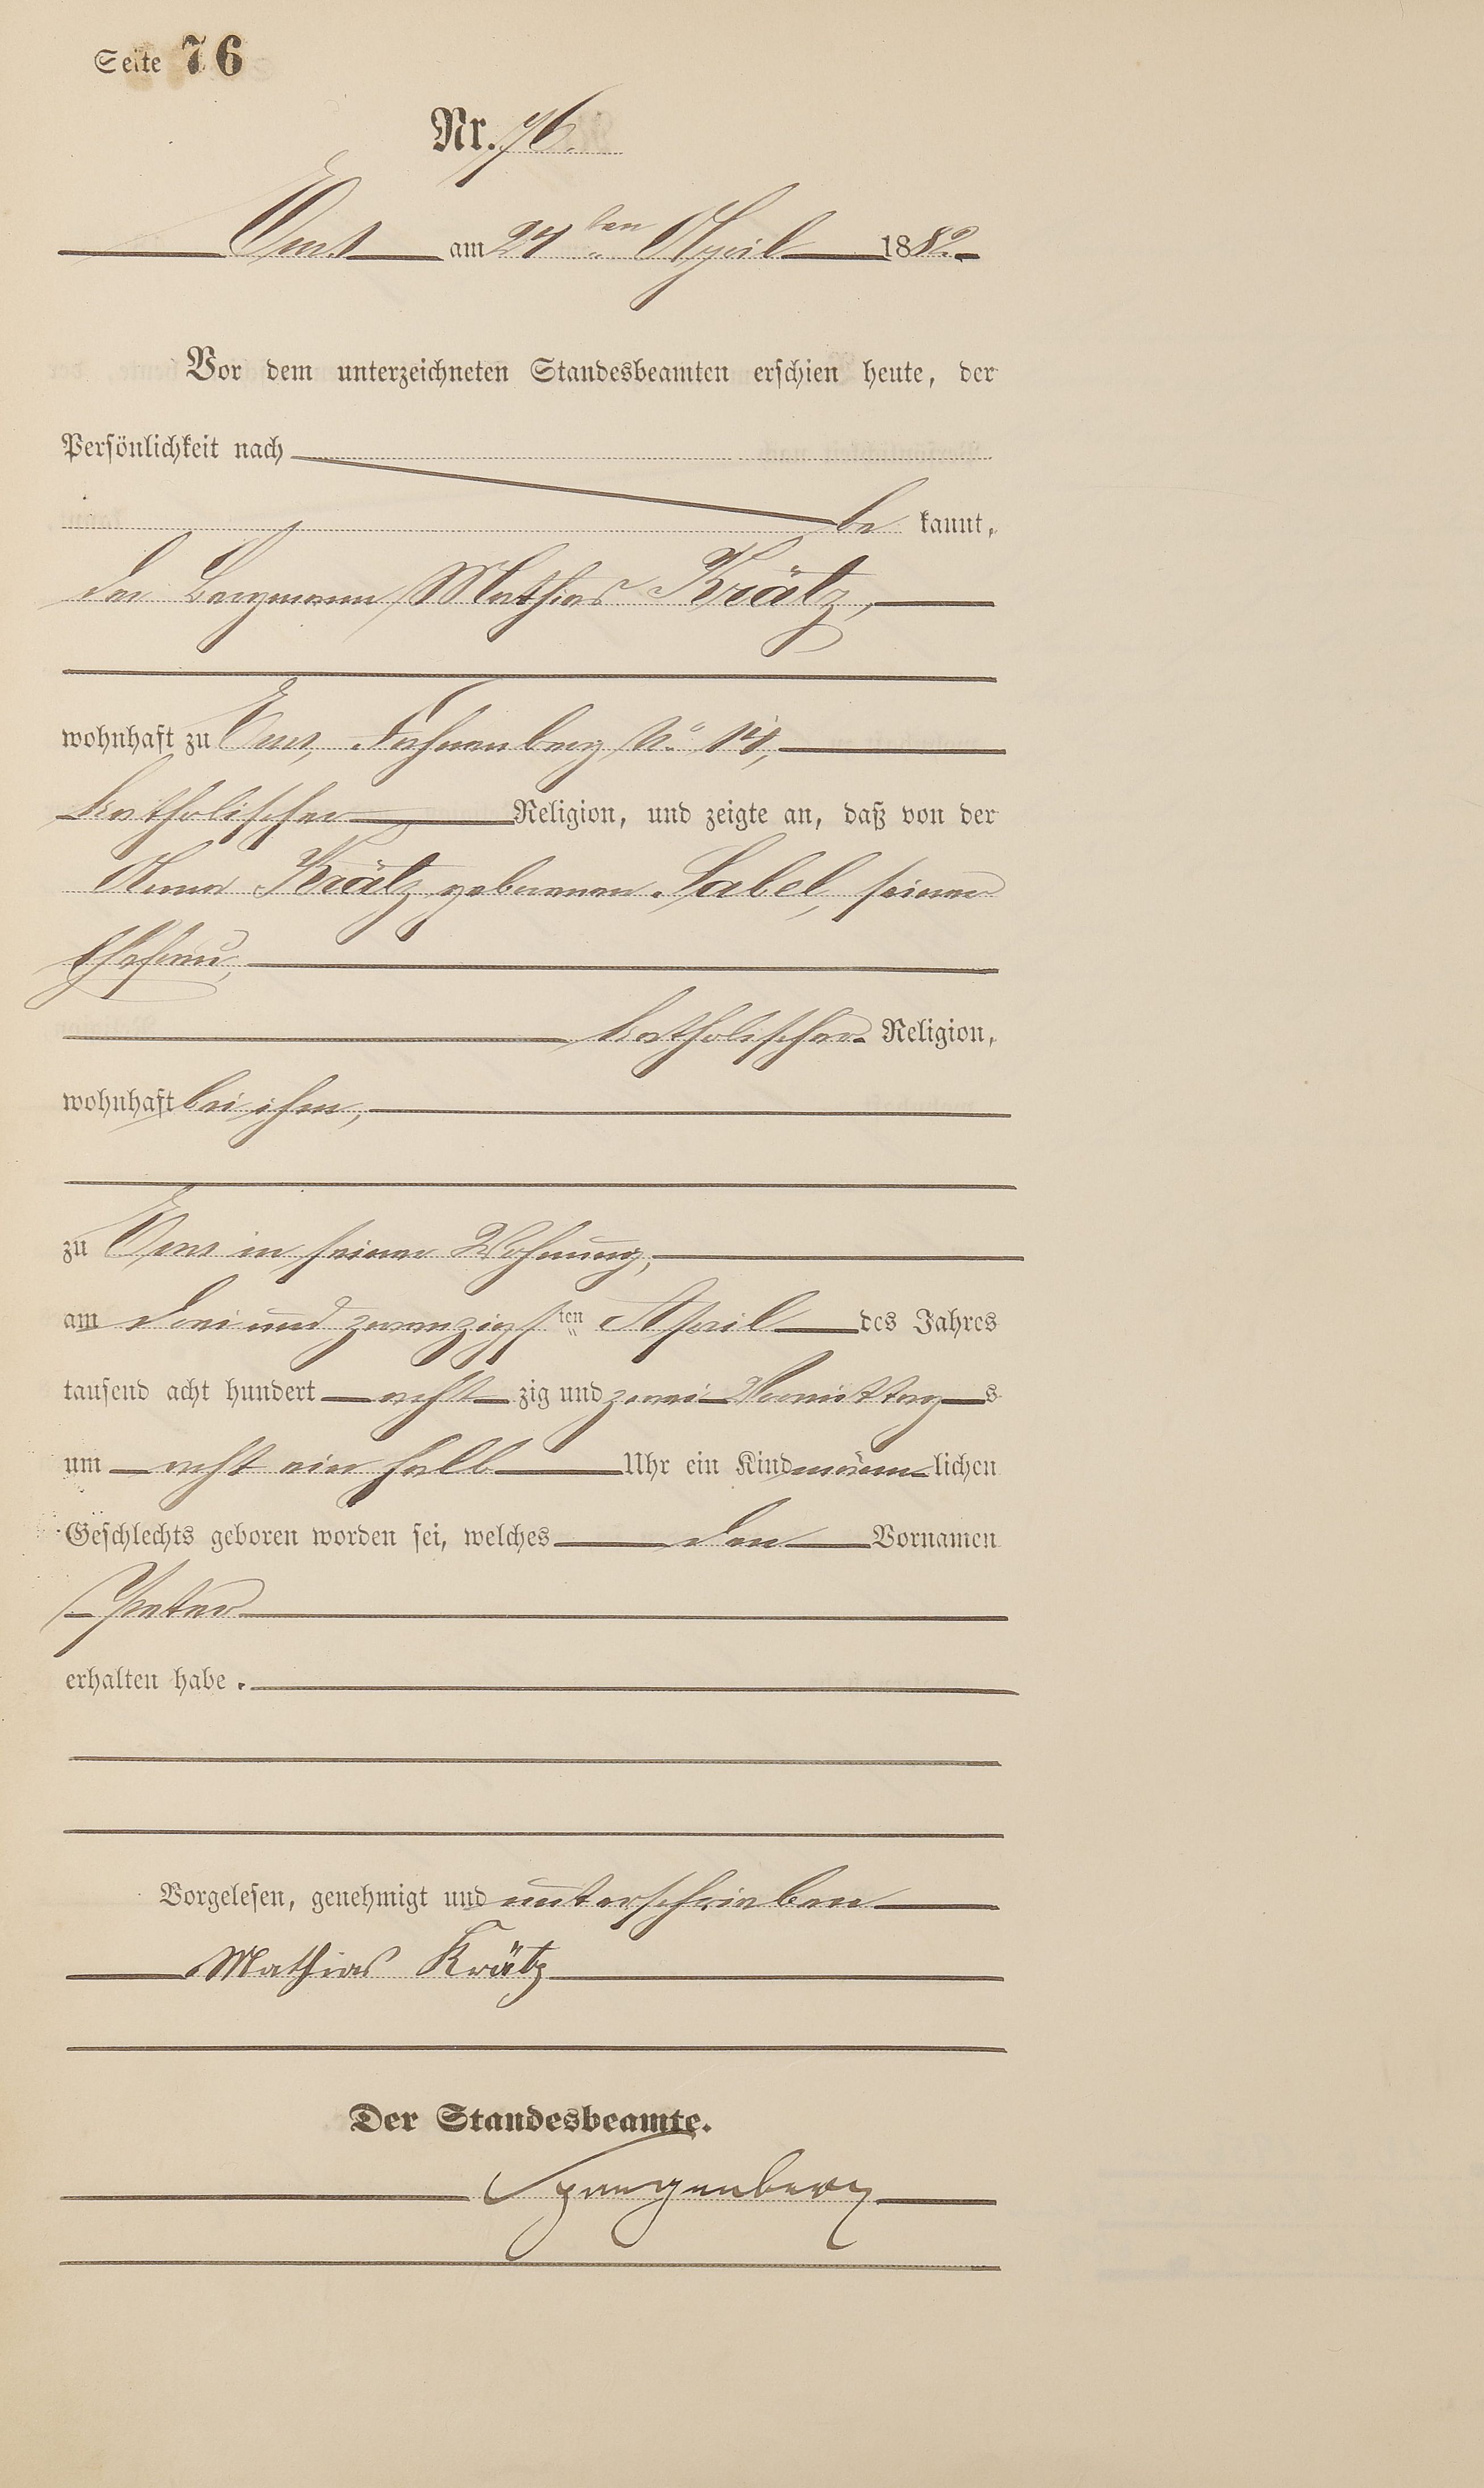 Seite 76
Nr. 76.
Ems am 24ten April 1882.
Vor dem unterzeichneten Standesbeamten erschien heute, der
Persönlichkeit nach
be kannt,
der Bergmann Mathias Krätz,
wohnhaft zu Ems, Fahnenberg No 14,
katholischer Religion, und zeigte an, daß von der
Anna Krätz geborenen Sabel, seiner
Ehefrau,
katholischer Religion,
wohnhaft bei ihm,
zu Ems in seiner Wohnung,
am drei und zwanzigsten April des Jahres
tausend acht hundert acht zig und zwei Vormittags
um acht ein halb Uhr ein Kind männlichen
Geschlechts geboren worden sei, welches den Vornamen
Peter
erhalten habe.
Vorgelesen, genehmigt und unterschrieben
Mathias Krätz
Der Standesbeamte.
Spangenberg